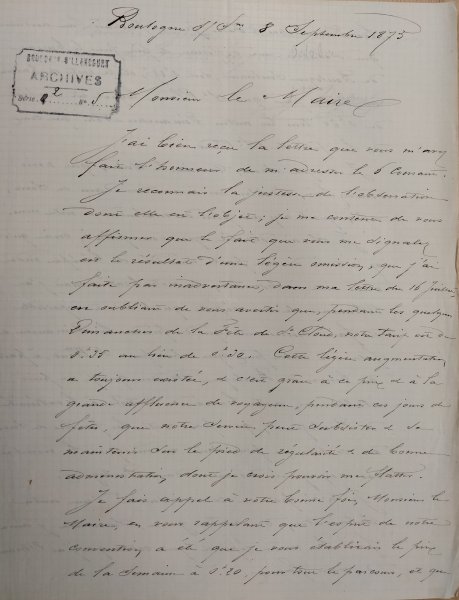 Boulogne s/Sne 8 Septembre 1875
BOULOGNE-BILLANCOURT
ARCHIVES
Série 2 N° 5
Monsieur le Maire
J'ai bien reçu la lettre que vous m'avez
fait l'honneur de m'adresser le 6 Courant.
Je reconnais la justesse de l'observation
dont elle est l'objet; je me contente de vous
affirmer que le fait que vous me signalez
est le résultat d'une légère omission, que j'ai
faite par inadvertance, dans ma lettre du 16 Juillet,
en oubliant de vous avertir que, pendant les quelques
Dimanches de la Fête de St Cloud, notre tarif est de
0f35 au lieu de 0f30. Cette légère augmentation
a toujours existée, et c'est grâce à ce prix et à la
grande affluence de voyageurs, pendant ces jours de
fêtes, que notre Service peut subsister et se
maintenir sur le pied de régularité et de bonne
administration, dont je crois pouvoir me flatter.
Je fais appel à votre bonne foi, Monsieur le
Maire, en vous rappelant que l'esprit de notre
convention, a été que je vous établirais le prix
de la Semaine à 0f20 pour tout le parcours, et que